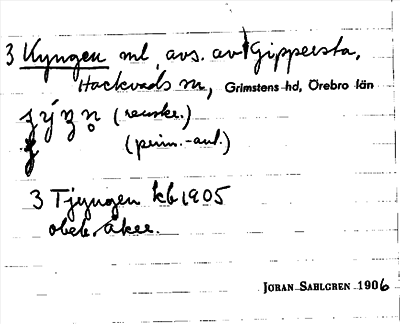 3 Kyngen ml, avs. av Gippersta,
Hackvads sn, Grimstens hd, Örebro län
(svenskt.)
(prim.-ant.)
3 Tjyngen kb 1905
obeb. åker.
JÖRAN SAHLGREN 1906